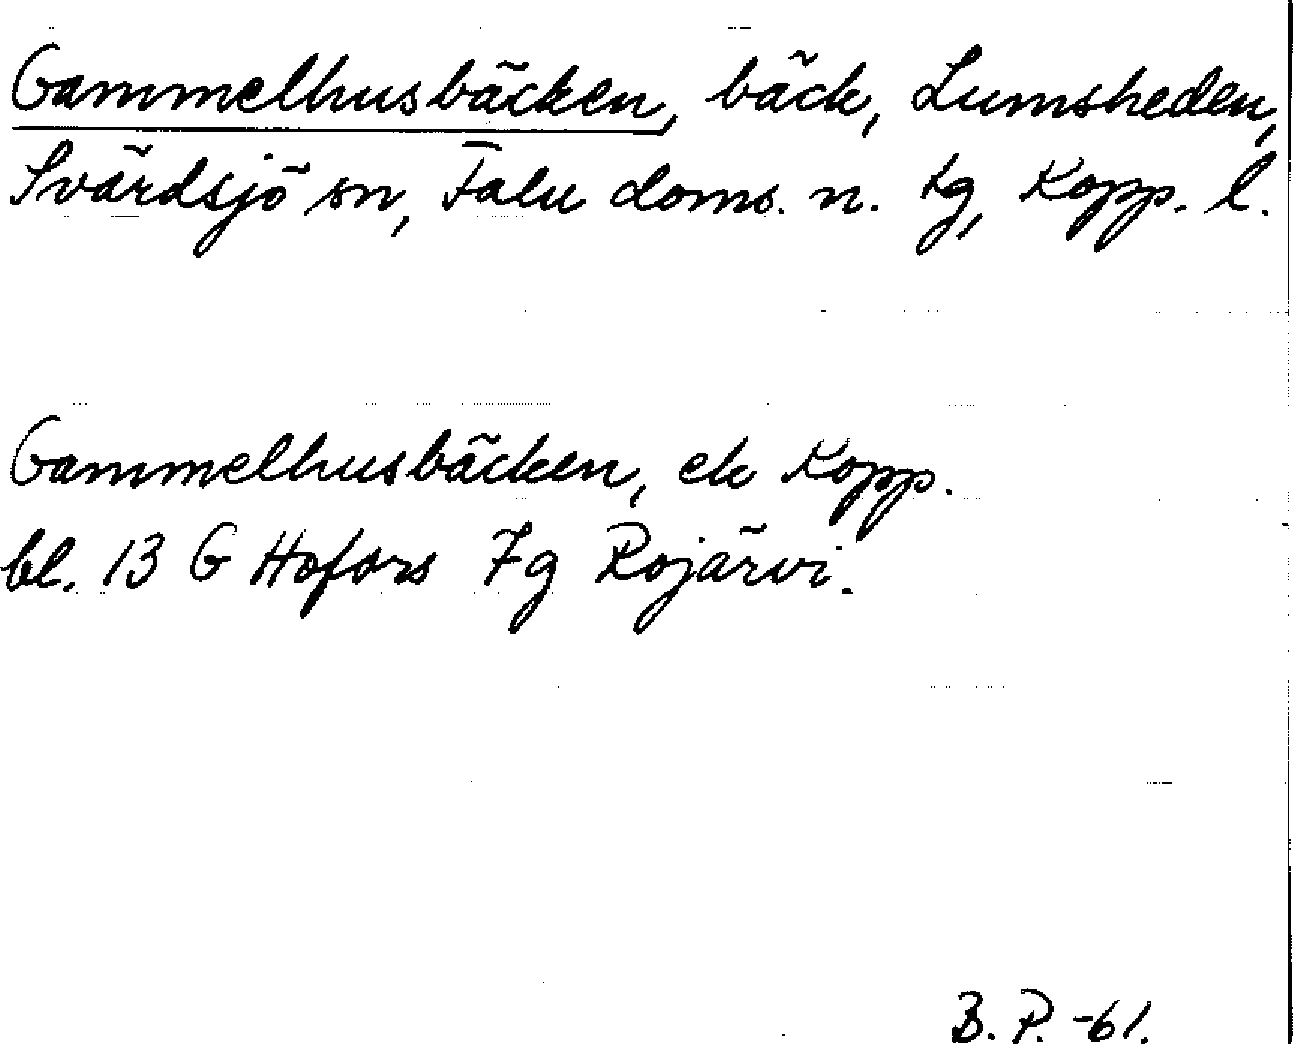 Gammelhusbäcken, bäck, Lumsheden,
Svärdsjö sn, Falu doms. n. tg, Kopp. l.
Gammelhusbäcken, ek Kopp.
bl. 13 G Hofors 7g Rojärvi.
B. P. -61.